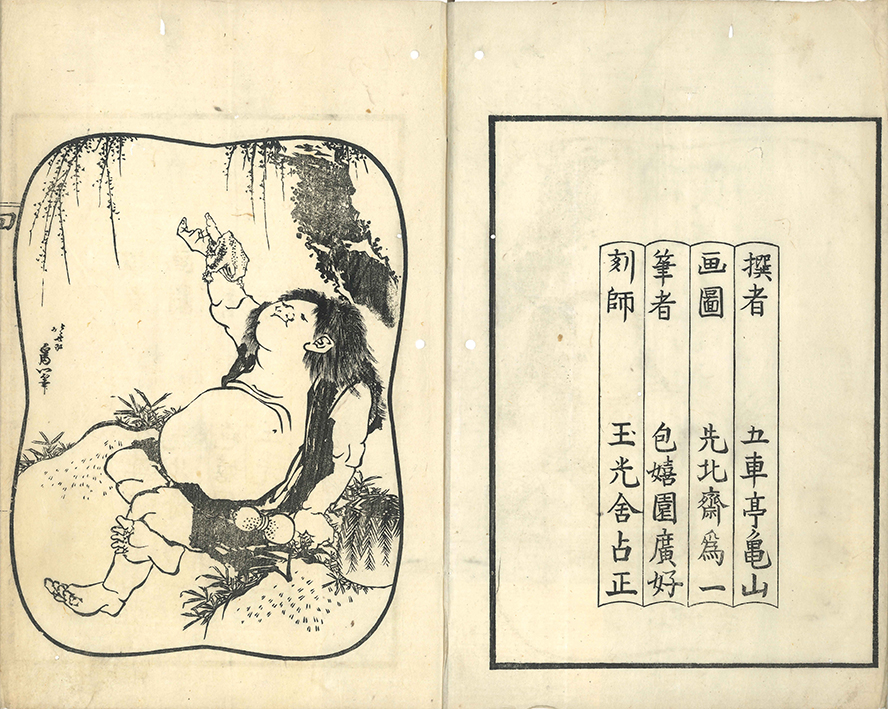 撰者 五車亭亀山
画圖 先北齋爲一
筆者 包嬉園廣好
刻師 玉光舍占正
爲一筆